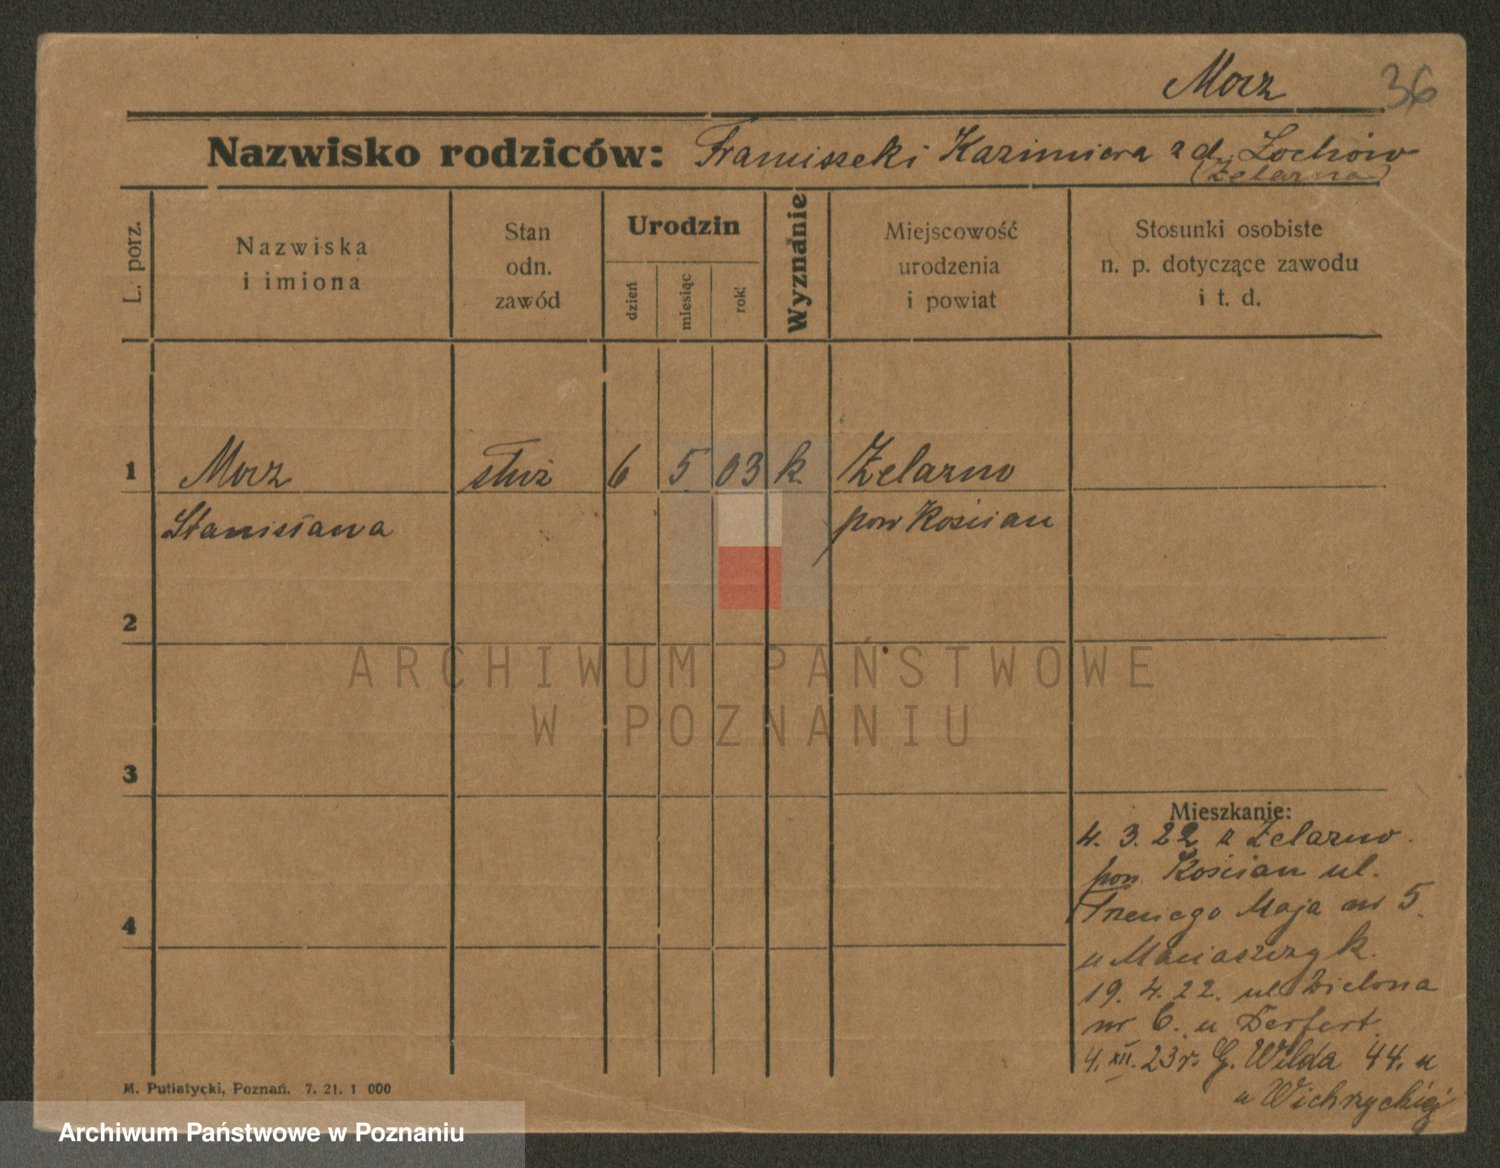 Morz 36
Nazwisko rodziców: Franciszek i Kazimiera z d. Zochów
(Żelazna)
L. porz.
Nazwiska
i imiona
Stan
odn.
zawód
Urodzin
dzień
miesiąc
rok
Wyznanie
Miejscowość
urodzenia
i powiat
Stosunki osobiste
n. p. dotyczące zawodu
i t. d.
1 Morz służ 6 5 03 k. Żelazno
Stanisława pow Kościan
2
ARCHIWUM PAŃSTWOWE
W POZNANIU
3
Mieszkanie:
4. 3. 22 z Żelazno
pow. Kościan ul.
Trzeciego Maja nr 5.
u Maciaszczyk.
4
19. 4. 22. ul Zielona
nr 6. u
4. XII. 23 r. G. Wilda 44. u
u
M. Putiatycki, Poznań. 7. 21. 1 000
Archiwum Państwowe w Poznaniu